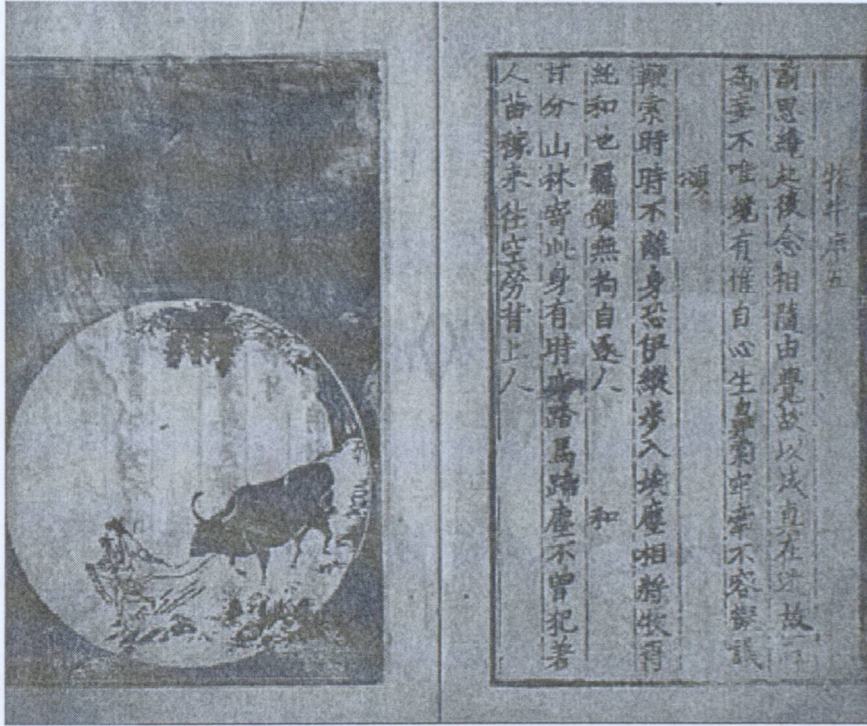 牧牛序五
前思纔起後念相隨由覺故以成真在迷故而
為妄不唯境有惟自心生鼻索牢牽不容擬議
頌
鞭索時時不離身恐伊縱步入埃塵相將牧得
純和也羈鎖無拘自逐人 和
甘分山林寄此身有時亦踏馬蹄塵不曾犯著
人苗稼来往空勞背上人